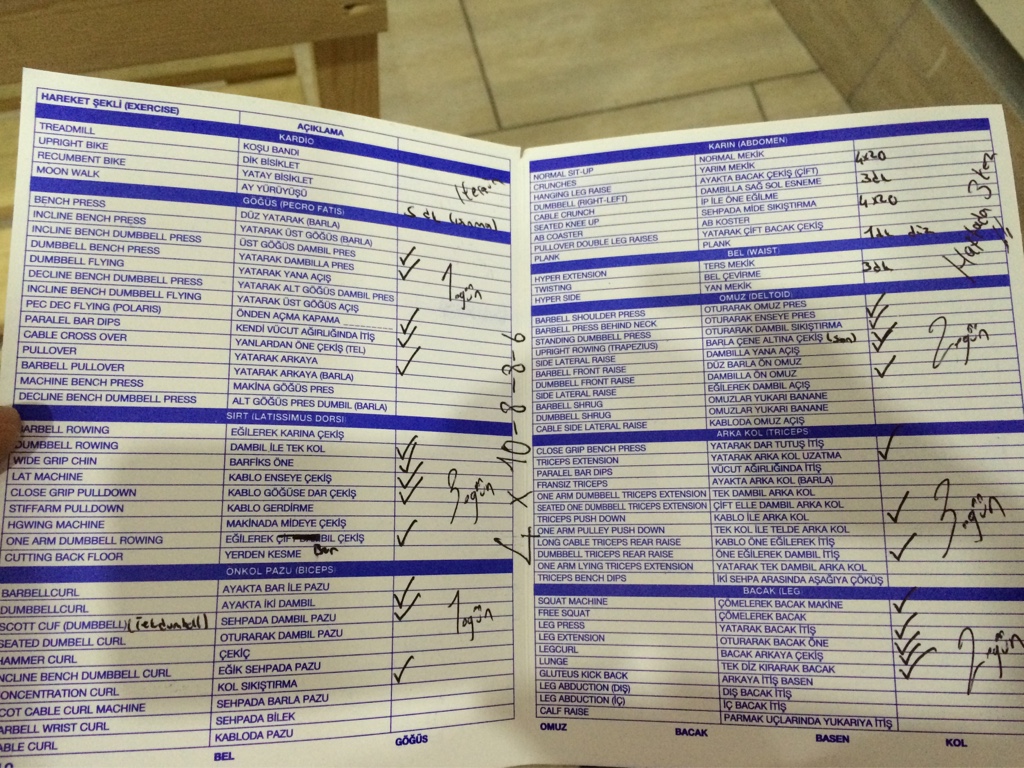 HAREKET ŞEKLİ (EXERCISE) AÇIKLAMA
KARDİO
TREADMILL KOŞU BANDI
UPRIGHT BIKE DİK BİSİKLET
RECUMBENT BIKE YATAY BİSİKLET
MOON WALK AY YÜRÜYÜŞÜ
GÖĞÜS (PECRO FATIS)
BENCH PRESS DÜZ YATARAK (BARLA)
INCLINE BENCH PRESS YATARAK ÜST GÖĞÜS (BARLA)
INCLINE BENCH DUMBBELL PRESS ÜST GÖĞÜS DAMBIL PRES
DUMBBELL BENCH PRESS YATARAK DAMBILLA PRES
DUMBBELL FLYING YATARAK YANA AÇIŞ
DECLINE BENCH DUMBBELL PRESS YATARAK ALT GÖĞÜS DAMBIL PRES
INCLINE BENCH DUMBBELL FLYING YATARAK ÜST GÖĞÜS AÇIŞ
PEC DEC FLYING (POLARIS) ÖNDEN AÇMA KAPAMA
PARALEL BAR DIPS KENDİ VÜCUT AĞIRLIĞINDA İTİŞ
CABLE CROSS OVER YANLARDAN ÖNE ÇEKİŞ (TEL)
PULLOVER YATARAK ARKAYA
BARBELL PULLOVER YATARAK ARKAYA (BARLA)
MACHINE BENCH PRESS MAKİNA GÖĞÜS PRES
DECLINE BENCH DUMBBELL PRESS ALT GÖĞÜS PRES DUMBIL (BARLA)
1.gün
SIRT (LATISSIMUS DORSI)
ARBELL ROWING EĞİLEREK KARINA ÇEKİŞ
DUMBBELL ROWING DAMBIL İLE TEK KOL
WIDE GRIP CHIN BARFİKS ÖNE
LAT MACHINE KABLO ENSEYE ÇEKİŞ
CLOSE GRIP PULLDOWN KABLO GÖĞÜSE DAR ÇEKİŞ
STIFFARM PULLDOWN KABLO GERDİRME
HGWING MACHINE MAKİNADA MİDEYE ÇEKİŞ
ONE ARM DUMBBELL ROWING EĞİLEREK BIL ÇEKİŞ
CUTTING BACK FLOOR YERDEN KESME
3.gün
ONKOL PAZU (BICEPS)
BARBELLCURL AYAKTA BAR İLE PAZU
DUMBBELLCURL AYAKTA İKİ DAMBIL
SCOTT CUF (DUMBBELL) SEHPADA DAMBIL PAZU
SEATED DUMBELL CURL OTURARAK DAMBIL PAZU
HAMMER CURL ÇEKİÇ
NCLINE BENCH DUMBBELL CURL EĞİK SEHPADA PAZU
ONCENTRATION CURL KOL SIKIŞTIRMA
COT CABLE CURL MACHINE SEHPADA BARLA PAZU
ARBELL WRIST CURL SEHPADA BİLEK
ABLE CURL KABLODA PAZU
1.gün
BEL GÖĞÜS
4 x 10-8-8-6
KARIN (ABDOMEN)
NORMAL SIT-UP NORMAL MEKİK 4x20
CRUNCHES YARIM MEKİK
HANGING LEG RAISE AYAKTA BACAK ÇEKİŞ (ÇİFT) 3dk
DUMBBELL (RIGHT-LEFT) DAMBILLA SAĞ SOL ESNEME
CABLE CRUNCH İP İLE ÖNE EĞİLME 4x20
SEATED KNEE UP SEHPADA MİDE SIKIŞTIRMA
AB COASTER AB KOSTER
PULLOVER DOUBLE LEG RAISES YATARAK ÇİFT BACAK ÇEKİŞ
PLANK PLANK
Haftada 3 kez
BEL (WAIST)
HYPER EXTENSION TERS MEKİK 3dk
TWISTING BEL ÇEVİRME
HYPER SIDE YAN MEKİK
OMUZ (DELTOID)
BARBELL SHOULDER PRESS OTURARAK OMUZ PRES
BARBELL PRESS BEHIND NECK OTURARAK ENSEYE PRES
STANDING DUMBBELL PRESS OTURARAK DAMBIL SIKIŞTIRMA
UPRIGHT ROWING (TRAPEZIUS) BARLA ÇENE ALTINA ÇEKİŞ (son)
SIDE LATERAL RAISE DAMBILLA YANA AÇIŞ
BARBELL FRONT RAISE DÜZ BARLA ÖN OMUZ
DUMBBELL FRONT RAISE DAMBILLA ÖN OMUZ
SIDE LATERAL RAISE EĞİLEREK DAMBIL AÇIŞ
BARBELL SHRUG OMUZLAR YUKARI BANANE
DUMBBELL SHRUG OMUZLAR YUKARI BANANE
CABLE SIDE LATERAL RAISE KABLODA OMUZ AÇIŞ
2.gün
ARKA KOL (TRICEPS
CLOSE GRIP BENCH PRESS YATARAK DAR TUTUŞ İTİŞ
TRICEPS EXTENSION YATARAK ARKA KOL UZATMA
PARALEL BAR DIPS VÜCUT AĞIRLIĞINDA İTİŞ
FRANSIZ TRICEPS AYAKTA ARKA KOL (BARLA)
ONE ARM DUMBBELL TRICEPS EXTENSION TEK DAMBIL ARKA KOL
SEATED ONE DUMBBELL TRICEPS EXTENSION ÇİFT ELLE DAMBIL ARKA KOL
TRICEPS PUSH DOWN KABLO İLE ARKA KOL
ONE ARM PULLEY PUSH DOWN TEK KOL İLE TELDE ARKA KOL
LONG CABLE TRICEPS REAR RAISE KABLO ÖNE EĞİLEREK İTİŞ
DUMBBELL TRICEPS REAR RAISE ÖNE EĞİLEREK DAMBIL İTİŞ
ONE ARM LYING TRICEPS EXTENSION YATARAK TEK DAMBIL ARKA KOL
TRICEPS BENCH DIPS İKİ SEHPA ARASINDA AŞAĞIYA ÇÖKÜŞ
3.gün
BACAK (LEG
SQUAT MACHINE ÇÖMELEREK BACAK MAKİNE
FREE SQUAT ÇÖMELEREK BACAK
LEG PRESS YATARAK BACAK İTİŞ
LEG EXTENSION OTURARAK BACAK ÖNE
LEGCURL BACAK ARKAYA ÇEKİŞ
LUNGE TEK DİZ KIRARAK BACAK
GLUTEUS KICK BACK ARKAYA İTİŞ BASEN
LEG ABDUCTION (DIŞ) DIŞ BACAK İTİŞ
LEG ABDUCTION (İÇ) İÇ BACAK İTİŞ
CALF RAISE PARMAK UÇLARINDA YUKARIYA İTİŞ
2.gün
OMUZ BACAK BASEN KOL